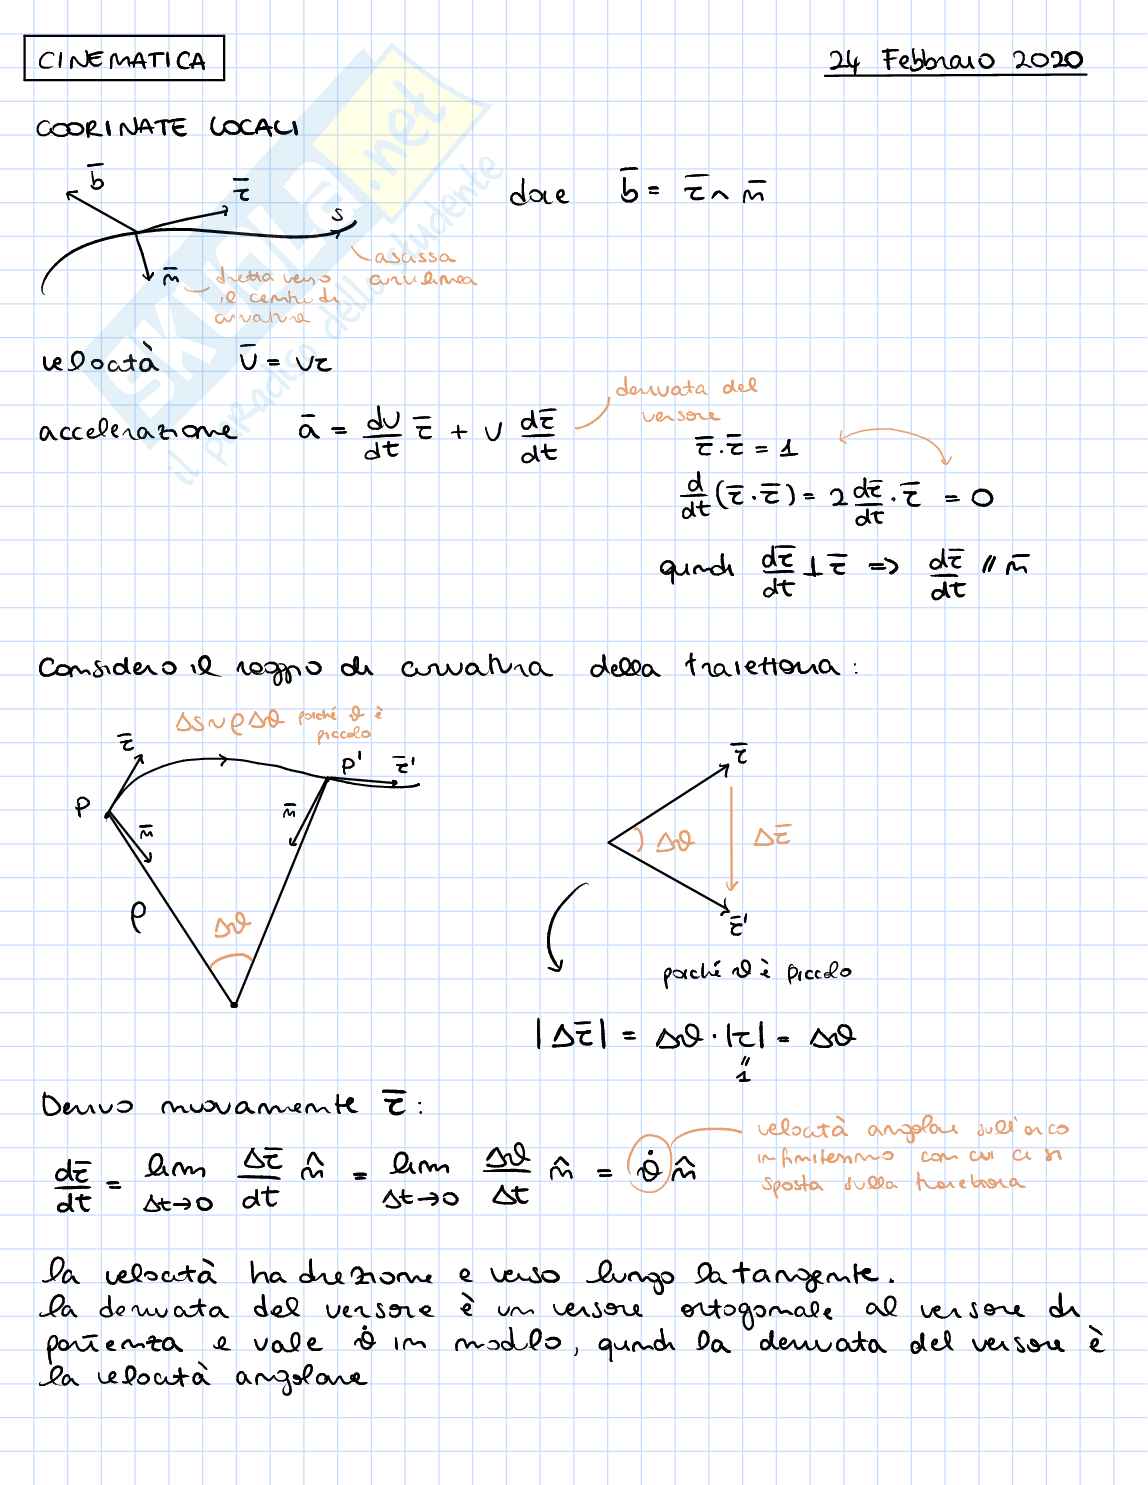 CINEMATICA
24 Febbraio 2020
COORINATE LOCALI
b̅
τ̅
s
n̅
dove b̅ = τ̅ ∧ n̅
diretta verso
il centro di
curvatura
ascissa
curvilinea
velocità v̅ = vτ
accelerazione a̅ = dv/dt τ̅ + v dτ̅/dt
derivata del
versore
τ̅ · τ̅ = 1
d/dt (τ̅ · τ̅) = 2 dτ̅/dt · τ̅ = 0
quindi dτ̅/dt ⊥ τ̅ => dτ̅/dt // n̅
Considero il raggio di curvatura della traiettoria:
Δs ~ ρΔϑ poiché ϑ è
piccolo
τ̅
P
n̅
P'
τ̅'
n̅
ρ
Δϑ
τ̅
Δϑ
Δτ̅
τ̅'
poiché ϑ è piccolo
|Δτ̅| = Δϑ · |τ| = Δϑ
"
1
Derivo nuovamente τ̅:
dτ̅/dt = lim Δt→0 Δτ̅/dt n̂ = lim Δt→0 Δϑ/Δt n̂ = ϑ̇ n̂
velocità angolare sull'arco
infinitesimo con cui ci si
sposta sulla traiettoria
la velocità ha direzione e verso lungo la tangente.
la derivata del versore è un versore ortogonale al versore di
partenza e vale ϑ̇ in modulo, quindi la derivata del versore è
la velocità angolare
SKUOLA.net
il paradiso dello studente